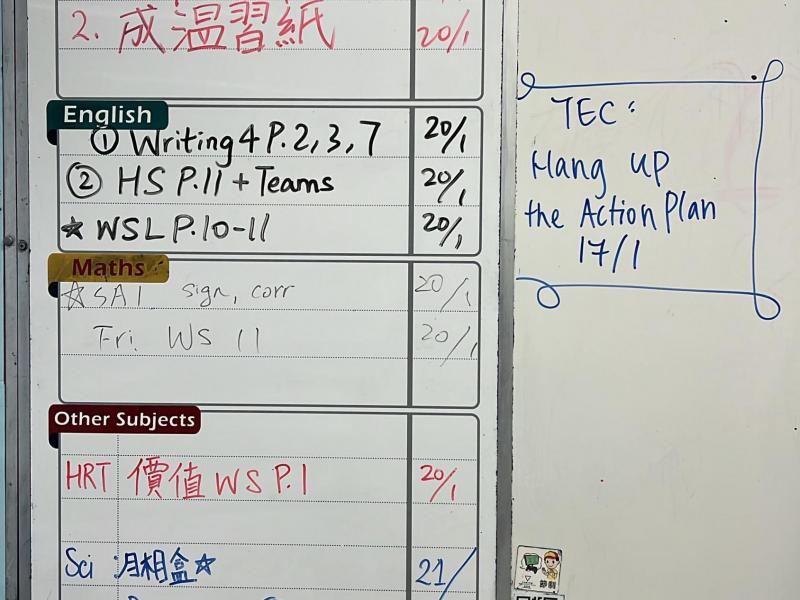 2. 成溫習紙 20/1
English
① Writing 4 P.2, 3, 7 20/1
② HS P.11 + Teams 20/1
☆ WSL P.10-11 20/1
Maths
☆ SA1 sign, corr 20/1
Fri. WS 11 20/1
Other Subjects
HRT 價值 WS P.1 20/1
Sci 月相盒☆ 21/
TEC:
Hang up
the Action Plan
17/1
節制